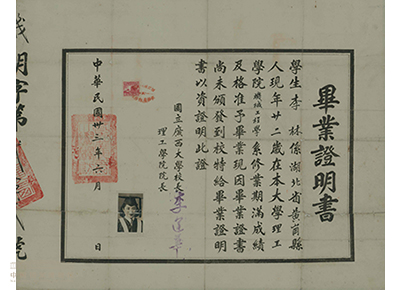 畢業證明書
學生李林儀湖北省黃岡縣
人現年廿二歲在本大學理工
學院機械工程學系修業期滿成績
及格准予畢業現因畢業證書
尚未頒發到校特給畢業證明
書以資證明此證
國立廣西大學校長李運華
理工學院院長
中華民國卅三年六月 日